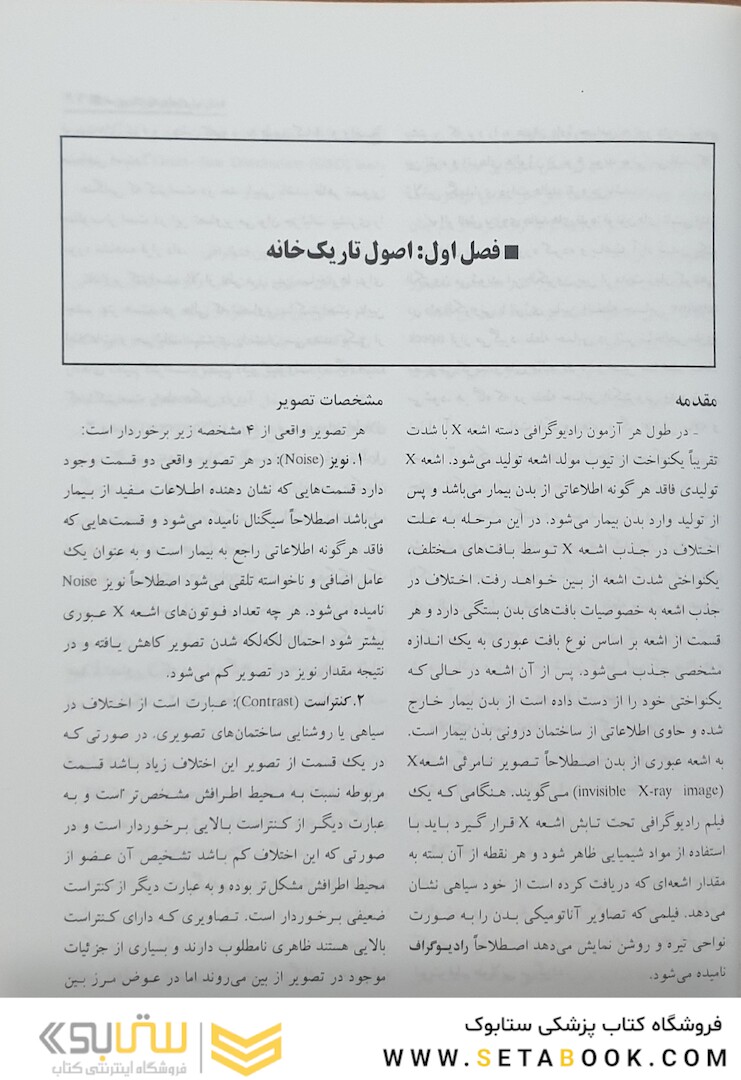 ■ فصل اول: اصول تاریک‌خانه
مقدمه
ـ در طول هر آزمون رادیوگرافی دسته اشعه X با شدت
تقریباً یکنواخت از تیوب مولد اشعه تولید می‌شود. اشعه X
تولیدی فاقد هرگونه اطلاعاتی از بدن بیمار می‌باشد و پس
از تولید وارد بدن بیمار می‌شود. در این مرحله به علت
اختلاف در جذب اشعه X توسط بافت‌های مختلف،
یکنواختی شدت اشعه از بین خواهد رفت. اختلاف در
جذب اشعه به خصوصیات بافت‌های بدن بستگی دارد و هر
قسمت از اشعه بر اساس نوع بافت عبوری به یک اندازه
مشخصی جذب می‌شود. پس از آن اشعه در حالی که
یکنواختی خود را از دست داده است از بدن بیمار خارج
شده و حاوی اطلاعاتی از ساختمان درونی بدن بیمار است.
به اشعه عبوری از بدن اصطلاحاً تصویر نامرئی اشعه X
(invisible X-ray image) می‌گویند. هنگامی که یک
فیلم رادیوگرافی تحت تابش اشعه X قرار گیرد باید با
استفاده از مواد شیمیایی ظاهر شود و هر نقطه از آن بسته به
مقدار اشعه‌ای که دریافت کرده است از خود سیاهی نشان
می‌دهد. فیلمی که تصاویر آناتومیکی بدن را به صورت
نواحی تیره و روشن نمایش می‌دهد اصطلاحاً رادیوگراف
نامیده می‌شود.
مشخصات تصویر
هر تصویر واقعی از ۴ مشخصه زیر برخوردار است:
۱. نویز (Noise): در هر تصویر واقعی دو قسمت وجود
دارد قسمت‌هایی که نشان دهنده اطلاعات مفید از بیمار
می‌باشد اصطلاحاً سیگنال نامیده می‌شود و قسمت‌هایی که
فاقد هرگونه اطلاعاتی راجع به بیمار است و به عنوان یک
عامل اضافی و ناخواسته تلقی می‌شود اصطلاحاً نویز Noise
نامیده می‌شود. هر چه تعداد فوتون‌های اشعه X عبوری
بیشتر شود احتمال لکه‌لکه شدن تصویر کاهش یافته و در
نتیجه مقدار نویز در تصویر کم می‌شود.
۲. کنتراست (Contrast): عبارت است از اختلاف در
سیاهی یا روشنایی ساختمان‌های تصویری. در صورتی که
در یک قسمت از تصویر این اختلاف زیاد باشد قسمت
مربوطه نسبت به محیط اطرافش مشخص‌تر است و به
عبارت دیگر از کنتراست بالایی برخوردار است و در
صورتی که این اختلاف کم باشد تشخیص آن عضو از
محیط اطرافش مشکل‌تر بوده و به عبارت دیگر از کنتراست
ضعیفی برخوردار است. تصاویری که دارای کنتراست
بالایی هستند ظاهری نامطلوب دارند و بسیاری از جزئیات
موجود در تصویر از بین می‌روند اما در عوض مرز بین
فروشگاه کتاب پزشکی ستابوک
WWW.SETABOOK.COM
ستابوک
فروشگاه اینترنتی کتاب